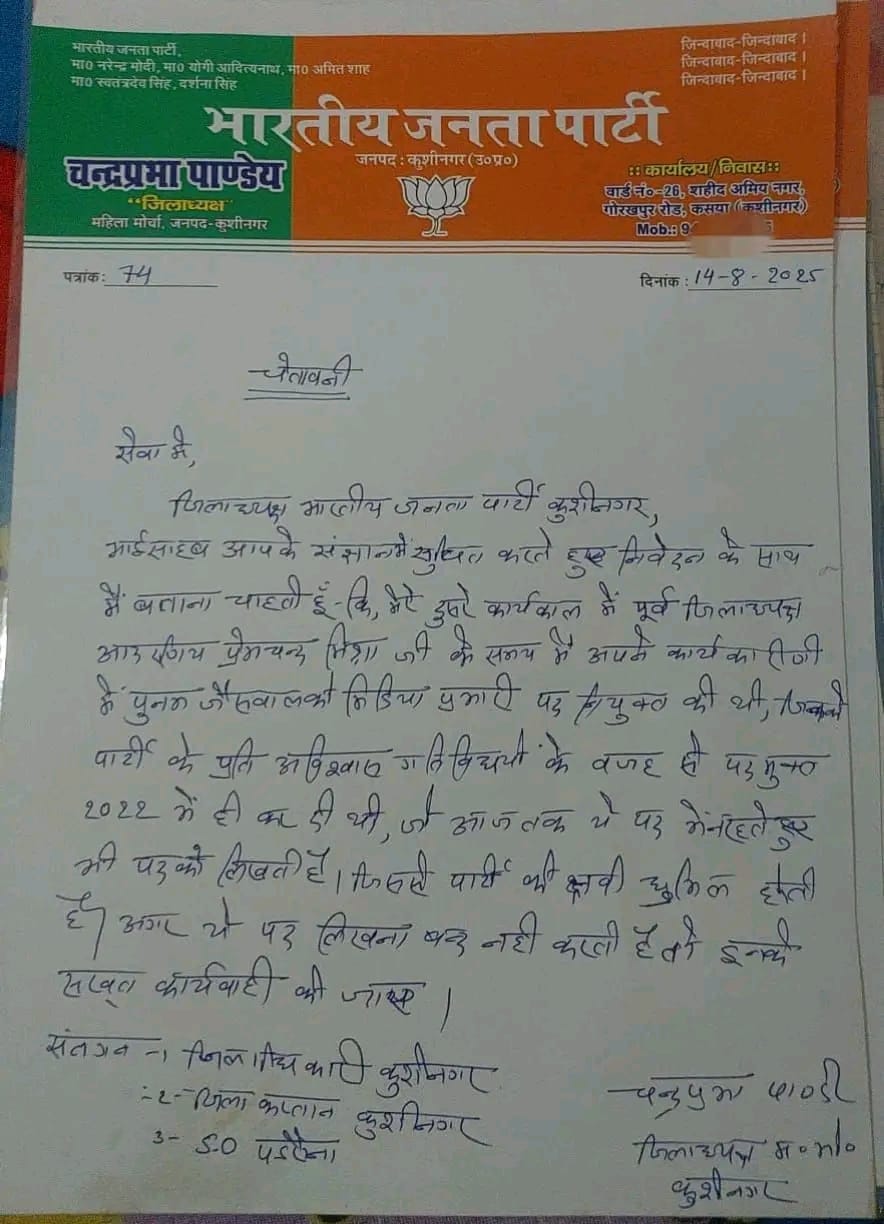 भारतीय जनता पार्टी,
मा0 नरेन्द्र मोदी, मा0 योगी आदित्यनाथ, मा0 अमित शाह
मा0 स्वतंत्रदेव सिंह, दर्शना सिंह
जिन्दाबाद-जिन्दाबाद।
जिन्दाबाद-जिन्दाबाद।
जिन्दाबाद-जिन्दाबाद।
भारतीय जनता पार्टी
जनपद : कुशीनगर (उ०प्र०)
चन्द्रप्रभा पाण्डेय
"जिलाध्यक्ष"
महिला मोर्चा, जनपद-कुशीनगर
:: कार्यालय/निवास::
वार्ड नं०-26, शहीद अमिय नगर,
गोरखपुर रोड, कसया (कुशीनगर)
Mob.: 9
पत्रांक: 74
दिनांक : 14-8-2025
चेतावनी
सेवा मे,
जिलाध्यक्ष भारतीय जनता पार्टी कुशीनगर,
भाईसाहब आपके संज्ञान में सुचित करते हुए निवेदन के साथ
मैं बताना चाहती हूँ-कि, मेरे दुसरे कार्यकाल में पूर्व जिलाध्यक्ष
आदरणिय प्रेमचन्द मिश्रा जी के समय मे अपने कार्यकारीणी
में पुनम जैसवाल को मिडिया प्रभारी पद नियुक्त की थी, जिनको
पार्टी के प्रति अविश्वास गतिविधियों के वजह से पदमुक्त
2022 में ही कर दी थी, जो आज तक ये पद में न रहते हुए
भी पद को लिखती है। जिससे पार्टी की क्षवी धुमिल होती
है। अगर ये पद लिखना बन्द नही करती है तो इनके
सख्त कार्यवाही की जाए।
संलग्न -1 जिलाधिकारी कुशीनगर
:-2- जिला कप्तान कुशीनगर
3- S.O पडरौना
चन्द्रप्रभा पाण्डे
जिलाध्यक्ष म०मो०
कुशीनगर